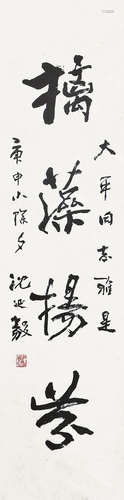 大年同志雅是
摛藻揚芬
庚申小除夕
沈延毅